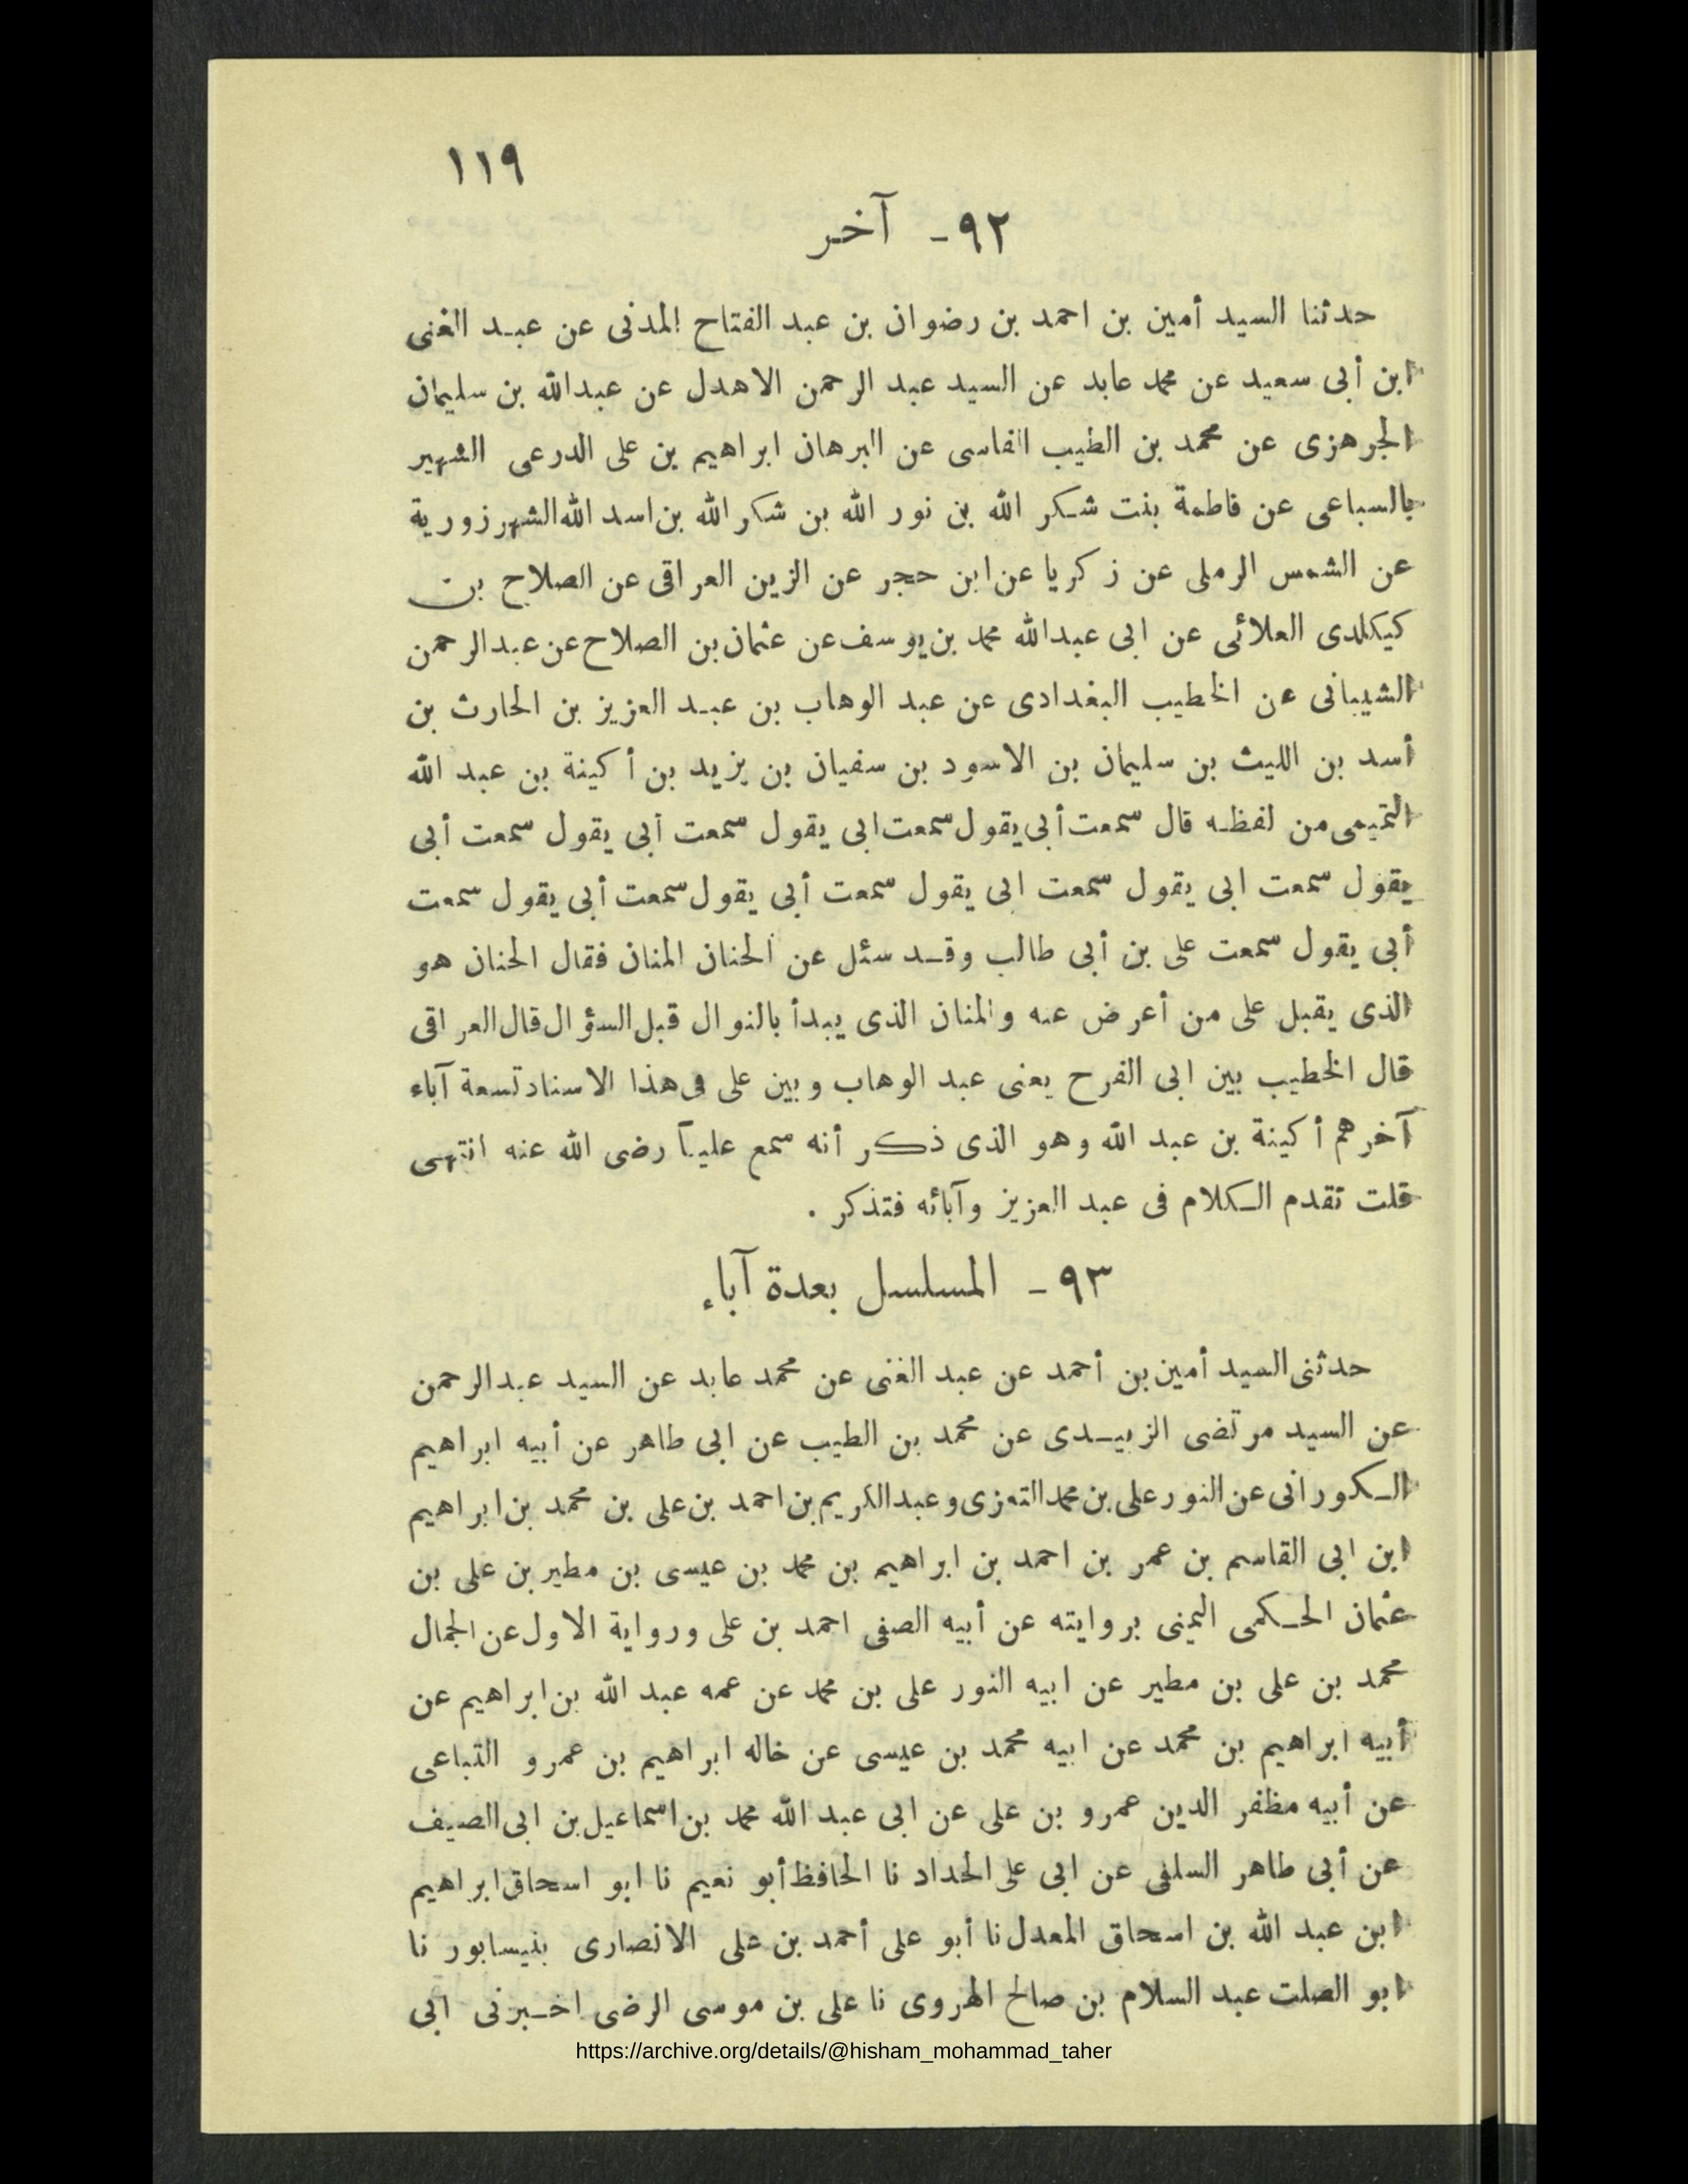 ١١٩
٩٢ - آخر
حدثنا السيد أمين بن احمد بن رضوان بن عبد الفتاح المدنى عن عبد الغنى
ابن أبى سعيد عن محمد عابد عن السيد عبد الرحمن الاهدل عن عبدالله بن سليمان
الجرهزى عن محمد بن الطيب الفاسى عن البرهان ابراهيم بن على الدرعى الشهير
بالسباعى عن فاطمة بنت شكر الله بن نور الله بن شكر الله بن اسد الله الشهرزورية
عن الشمس الرملى عن زكريا عن ابن حجر عن الزين العراقى عن الصلاح بن
كيكلدى العلائى عن ابى عبدالله محمد بن يوسف عن عثمان بن الصلاح عن عبد الرحمن
الشيبانى عن الخطيب البغدادى عن عبد الوهاب بن عبد العزيز بن الحارث بن
أسد بن الليث بن سليمان بن الاسود بن سفيان بن يزيد بن أكينة بن عبد الله
التميمى من لفظه قال سمعت أبى يقول سمعت ابى يقول سمعت أبى يقول سمعت أبى
يقول سمعت ابى يقول سمعت ابى يقول سمعت أبى يقول سمعت أبى يقول سمعت
أبى يقول سمعت على بن أبى طالب وقد سئل عن الحنان المنان فقال الحنان هو
الذى يقبل على من أعرض عنه والمنان الذى يبدأ بالنوال قبل السؤال قال العراقى
قال الخطيب بين ابى الفرح يعنى عبد الوهاب وبين على فى هذا الاسناد تسعة آباء
آخرهم أكينة بن عبد الله وهو الذى ذكر أنه سمع علياً رضى الله عنه انتهى
قلت تقدم الكلام فى عبد العزيز وآبائه فتذكر .
٩٣ - المسلسل بعدة آباء
حدثنى السيد أمين بن أحمد عن عبد الغنى عن محمد عابد عن السيد عبد الرحمن
عن السيد مرتضى الزبيدى عن محمد بن الطيب عن ابى طاهر عن أبيه ابراهيم
الكورانى عن النور على بن محمد التعزى وعبد الكريم بن احمد بن على بن محمد بن ابراهيم
ابن ابى القاسم بن عمر بن احمد بن ابراهيم بن محمد بن عيسى بن مطير بن على بن
عثمان الحكمى اليمنى بروايته عن أبيه الصفى احمد بن على ورواية الاول عن الجمال
محمد بن على بن مطير عن ابيه النور على بن محمد عن عمه عبد الله بن ابراهيم عن
أبيه ابراهيم بن محمد عن ابيه محمد بن عيسى عن خاله ابراهيم بن عمرو التباعى
عن أبيه مظفر الدين عمرو بن على عن ابى عبد الله محمد بن اسماعيل بن ابى الصيف
عن أبى طاهر السلفى عن ابى على الحداد نا الحافظ أبو نعيم نا ابو اسحاق ابراهيم
ابن عبد الله بن اسحاق المعدل نا أبو على أحمد بن على الانصارى بنيسابور نا
ابو الصلت عبد السلام بن صالح الهروى نا على بن موسى الرضى اخبرنى ابى
https://archive.org/details/@hisham_mohammad_taher